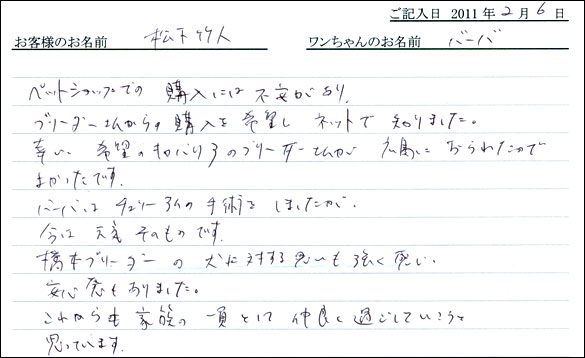 ご記入日 2011年2月6日
お客様のお名前 松下 竹人 ワンちゃんのお名前 バーバ
ペットショップでの 購入には 不安があり、
ブリーダーさんからの購入を希望し ネットで 知りました。
幸い、希望のキャバリアのブリーダーさんが 広島に おられたので
よかったです。
バーバは チェリーアイの手術を しましたが、
今は 元気 そのものです。
橋本ブリーダーの 犬に対する思いも強く感じ、
安心感もありました。
これからも 家族の一員として 仲良く過ごしていこうと
思っています。